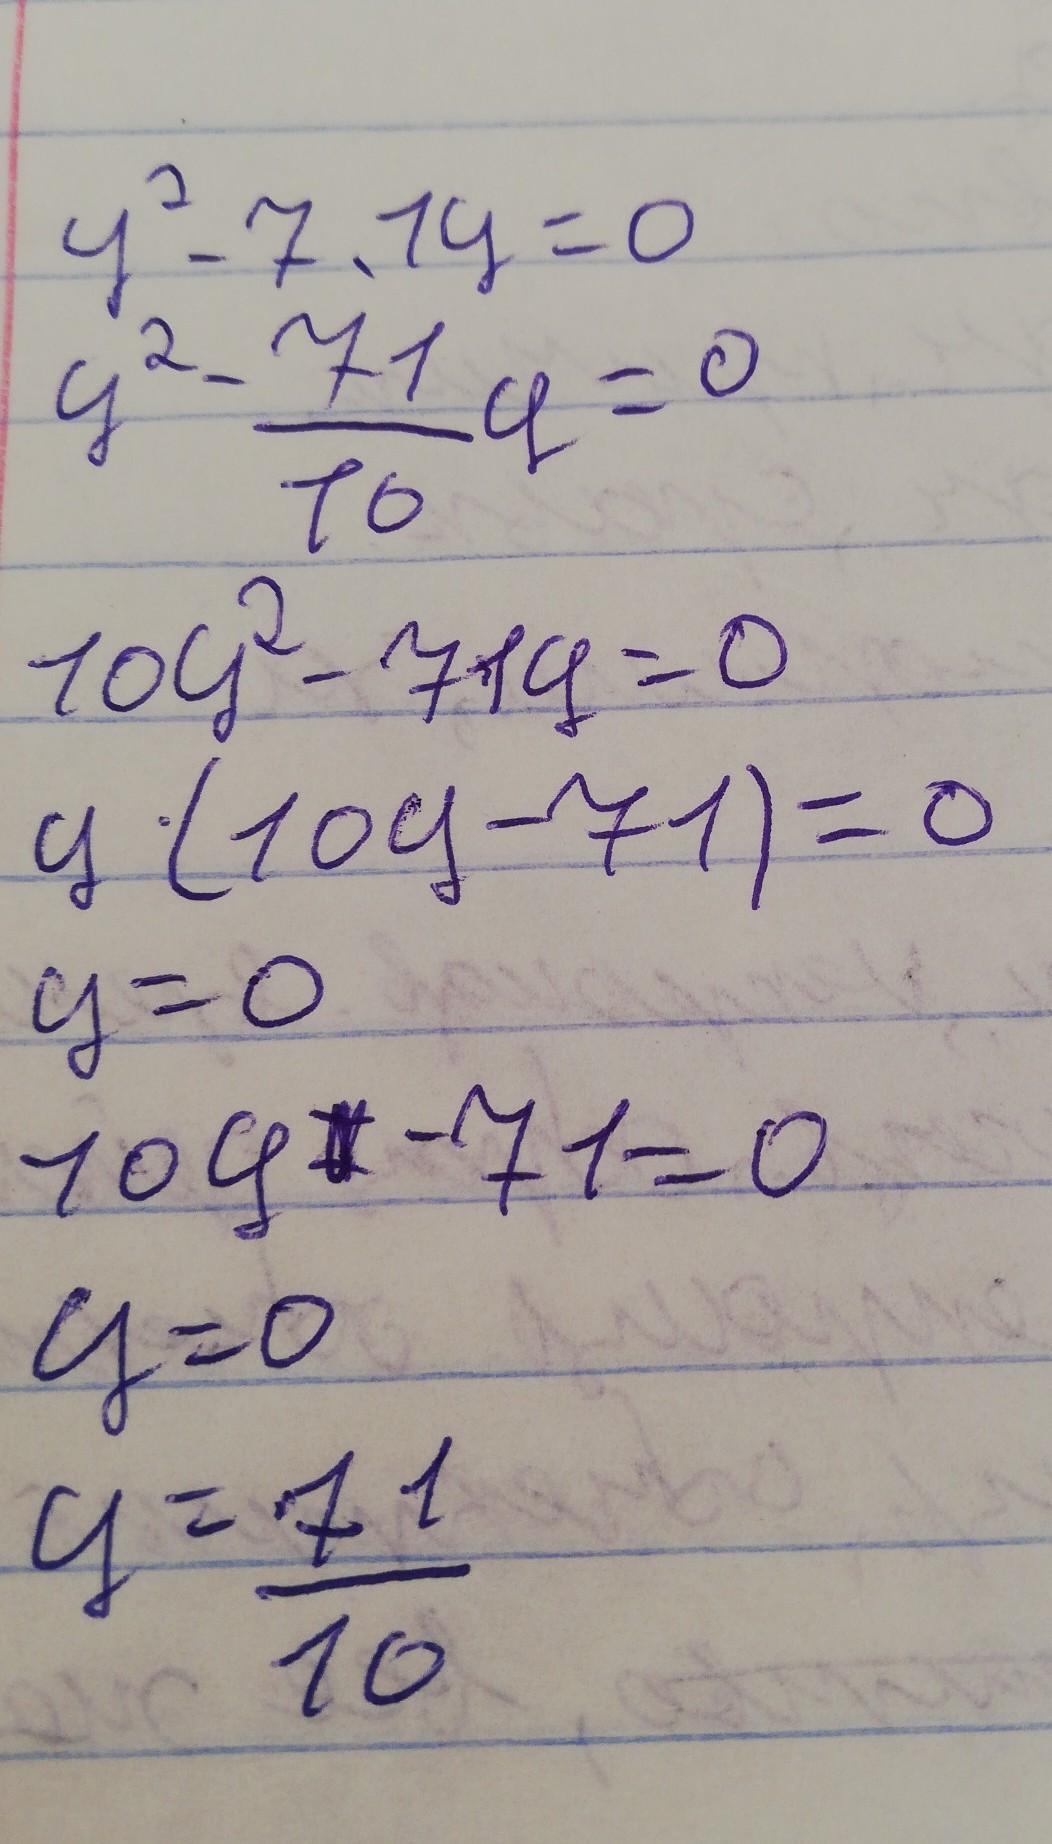 y² - 7.1y = 0
y² - 71/10 y = 0
10y² - 71y = 0
y · (10y - 71) = 0
y = 0
10y - 71 = 0
y = 0
y = 71/10